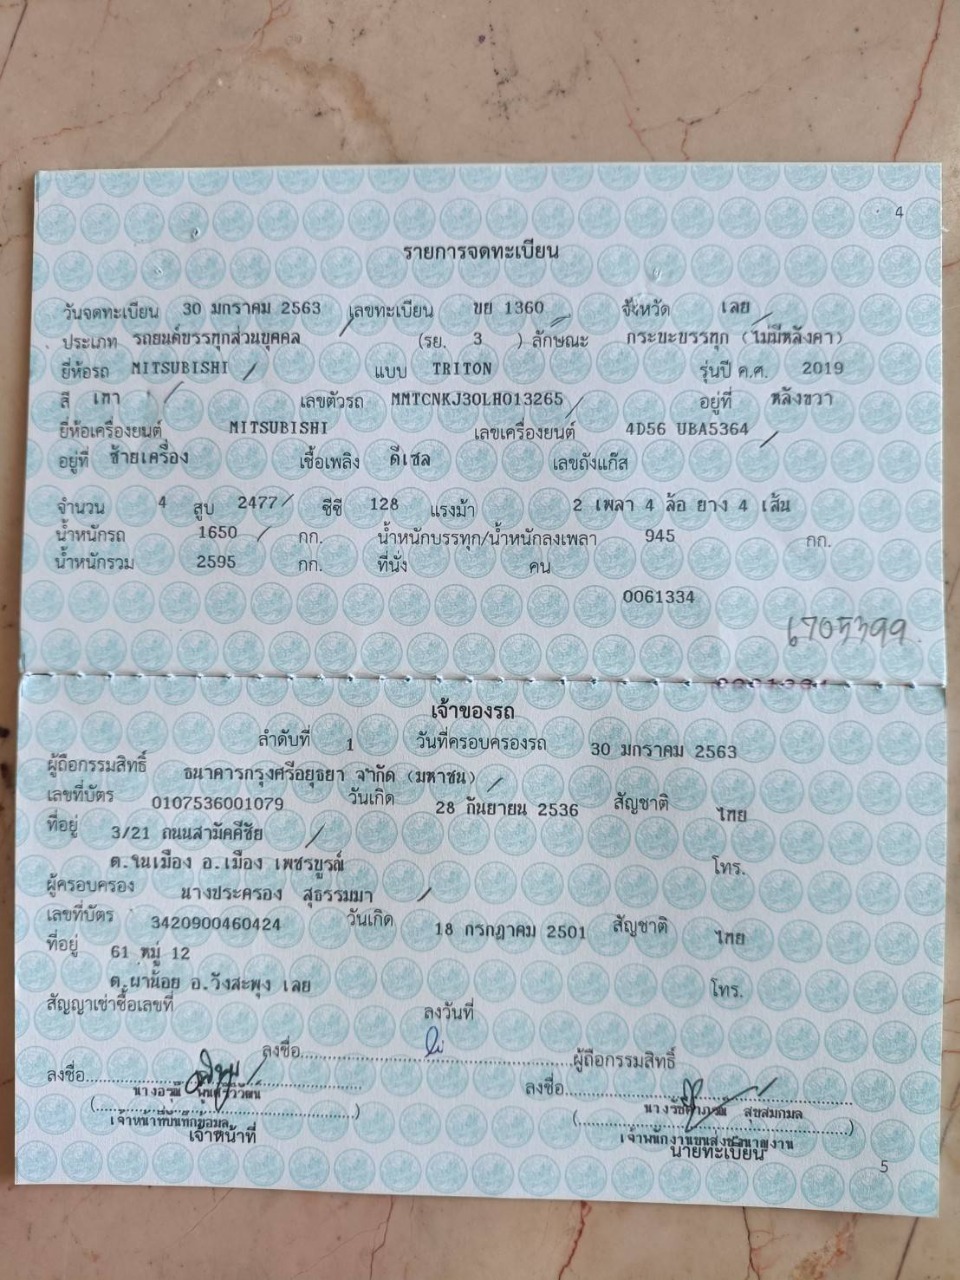 4
รายการจดทะเบียน
วันจดทะเบียน 30 มกราคม 2563 เลขทะเบียน ขย 1360 จังหวัด เลย
ประเภท รถยนต์บรรทุกส่วนบุคคล (รย. 3 ) ลักษณะ กระบะบรรทุก (ไม่มีหลังคา)
ยี่ห้อรถ MITSUBISHI แบบ TRITON รุ่นปี ค.ศ. 2019
สี เทา เลขตัวรถ MMTCNKJ30LH013265 อยู่ที่ หลังขวา
ยี่ห้อเครื่องยนต์ MITSUBISHI เลขเครื่องยนต์ 4D56 UBA5364
อยู่ที่ ซ้ายเครื่อง เชื้อเพลิง ดีเซล เลขถังแก๊ส
จำนวน 4 สูบ 2477 ซีซี 128 แรงม้า 2 เพลา 4 ล้อ ยาง 4 เส้น
น้ำหนักรถ 1650 กก. น้ำหนักบรรทุก/น้ำหนักลงเพลา 945 กก.
น้ำหนักรวม 2595 กก. ที่นั่ง คน
0061334
6705399
เจ้าของรถ
ลำดับที่ 1 วันที่ครอบครองรถ 30 มกราคม 2563
ผู้ถือกรรมสิทธิ์ ธนาคารกรุงศรีอยุธยา จำกัด (มหาชน)
เลขที่บัตร 0107536001079 วันเกิด 28 กันยายน 2536 สัญชาติ ไทย
ที่อยู่ 3/21 ถนนสามัคคีชัย
ต.ในเมือง อ.เมือง เพชรบูรณ์ โทร.
ผู้ครอบครอง นางประครอง สุธรรมมา
เลขที่บัตร 3420900460424 วันเกิด 18 กรกฎาคม 2501 สัญชาติ ไทย
ที่อยู่ 61 หมู่ 12
ต.ผาน้อย อ.วังสะพุง เลย โทร.
สัญญาเช่าซื้อเลขที่ ลงวันที่
ลงชื่อ ผู้ถือกรรมสิทธิ์
ลงชื่อ ลงชื่อ
นางอรุณี สุขสมกมล
เจ้าหน้าที่บันทึกข้อมูล เจ้าพนักงานขนส่งชำนาญงาน
เจ้าหน้าที่ นายทะเบียน
5